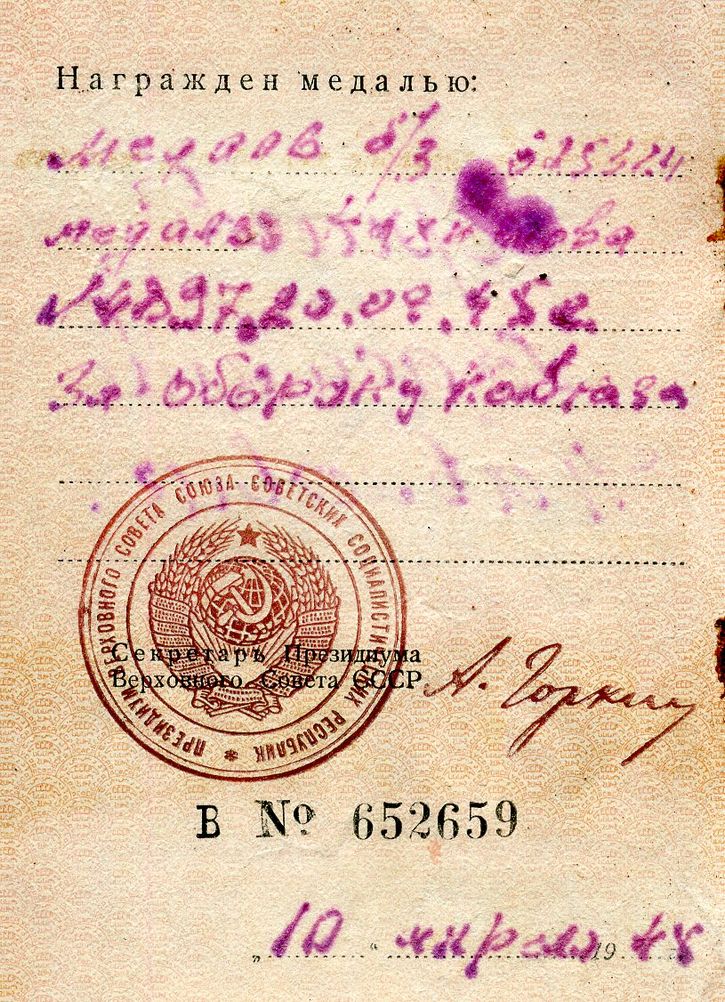 Награжден медалью:
медаль б/з
медалью
20.09.45г.
За оборону
ПРЕЗИДИУМ ВЕРХОВНОГО СОВЕТА СОЮЗА СОВЕТСКИХ СОЦИАЛИСТИЧЕСКИХ РЕСПУБЛИК *
Секретарь Президиума
Верховного Совета СССР
А. Горкин
В № 652659
„10“ апреля 1948